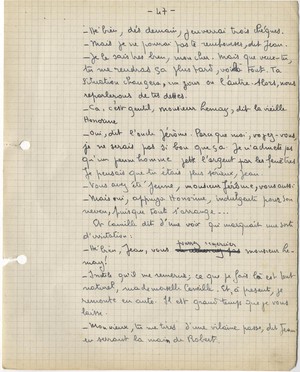 - 47 -
- Hé bien, dès demain, j'enverrai trois chèques.
- Mais je ne pourrai pas te rembourser, dit Jean.
- Je le sais très bien, mon cher. Mais que veux-tu,
tu me rendras ça plus tard, voilà tout. Ta
situation changera, un jour ou l'autre. Alors, nous
reparlerons de tes dettes.
- Ça, c'est gentil, monsieur Lemay, dit la vieille
Honorine
- Oui, dit l'oncle Jérôme. Parce que moi, voyez-vous
je ne serais pas si bon que ça. Je n'admets pas
qu'un jeune homme jette l'argent par les fenêtres
Je pensais que tu étais plus sérieux, Jean.
- Vous avez été jeune, monsieur Jérôme, vous aussi.
- Mais oui, appuya Honorine, indulgente pour son
neveu, puisque tout s'arrange...
Or Camille dit d'une voix qui marquait une sorte
d'irritation :
- Hé bien, Jean, vous pouvez remercier monsieur Le-
may !
- Inutile qu'il me remercie ; ce que je fais là est tout
naturel, mademoiselle Camille. Et, à présent, je
remonte en auto. Il est grand temps que je vous
laisse.
- Mon vieux, tu me tires d'une vilaine passe, dit Jean
en serrant la main de Robert.